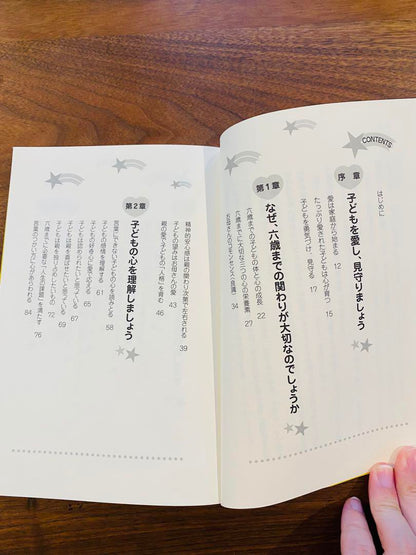 CONTENTS
はじめに
序章
子どもを愛し、見守りましょう
愛は家庭から始まる 12
たっぷり愛された子どもは心が育つ 15
子どもを勇気づけ、見守る 17
第1章
なぜ、六歳までの関わりが大切なのでしょうか
六歳までの子どもの体と心の成長 22
六歳までに大切な三つの心の栄養素 27
お母さんのコモンセンス(良識)
精神的安心感は親の関わり次第で左右される 39
子どもの望みはお母さんの愛 43
親の愛で子どもの「人格」を育む 46
第2章
子どもの心を理解しましょう
言葉にできない子どもの心を読みとる 58
子どもの感情を理解する 61
子どもの好奇心に愛で応える 65
子どもは認められたいと思っている 67
子どもは親を喜ばせたいと思っている 69
子どもは親を独り占めしたいもの 72
六歳までに必要な「人生の課題」を満たす 76
言葉のつかい方に心があらわれる 84